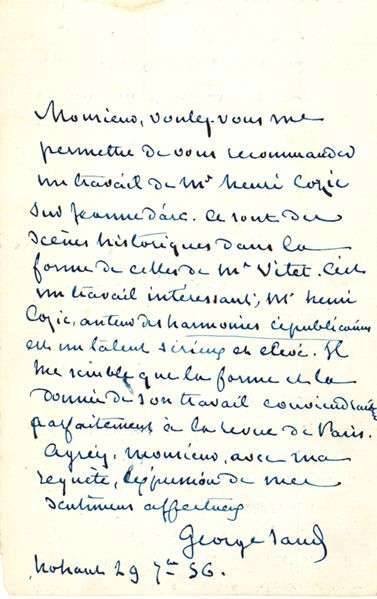 Monsieur, voulez-vous me
permettre de vous recommander
un travail de Mr henri Cozic
sur Jeanne d'arc. Ce sont des
scènes historiques dans la
forme de celles de Mr Vitet. C'est
un travail intéressant, Mr henri
Cozic, auteur des harmonies républicaines
est un talent sérieux et élevé. Il
me semble que la forme et la
donnée de son travail conviendrait
parfaitement à la revue de Paris.
Agréez, monsieur, avec ma
requête, l'expression de mes
sentimens affectueux
George Sand
Nohant 29 7bre 56.